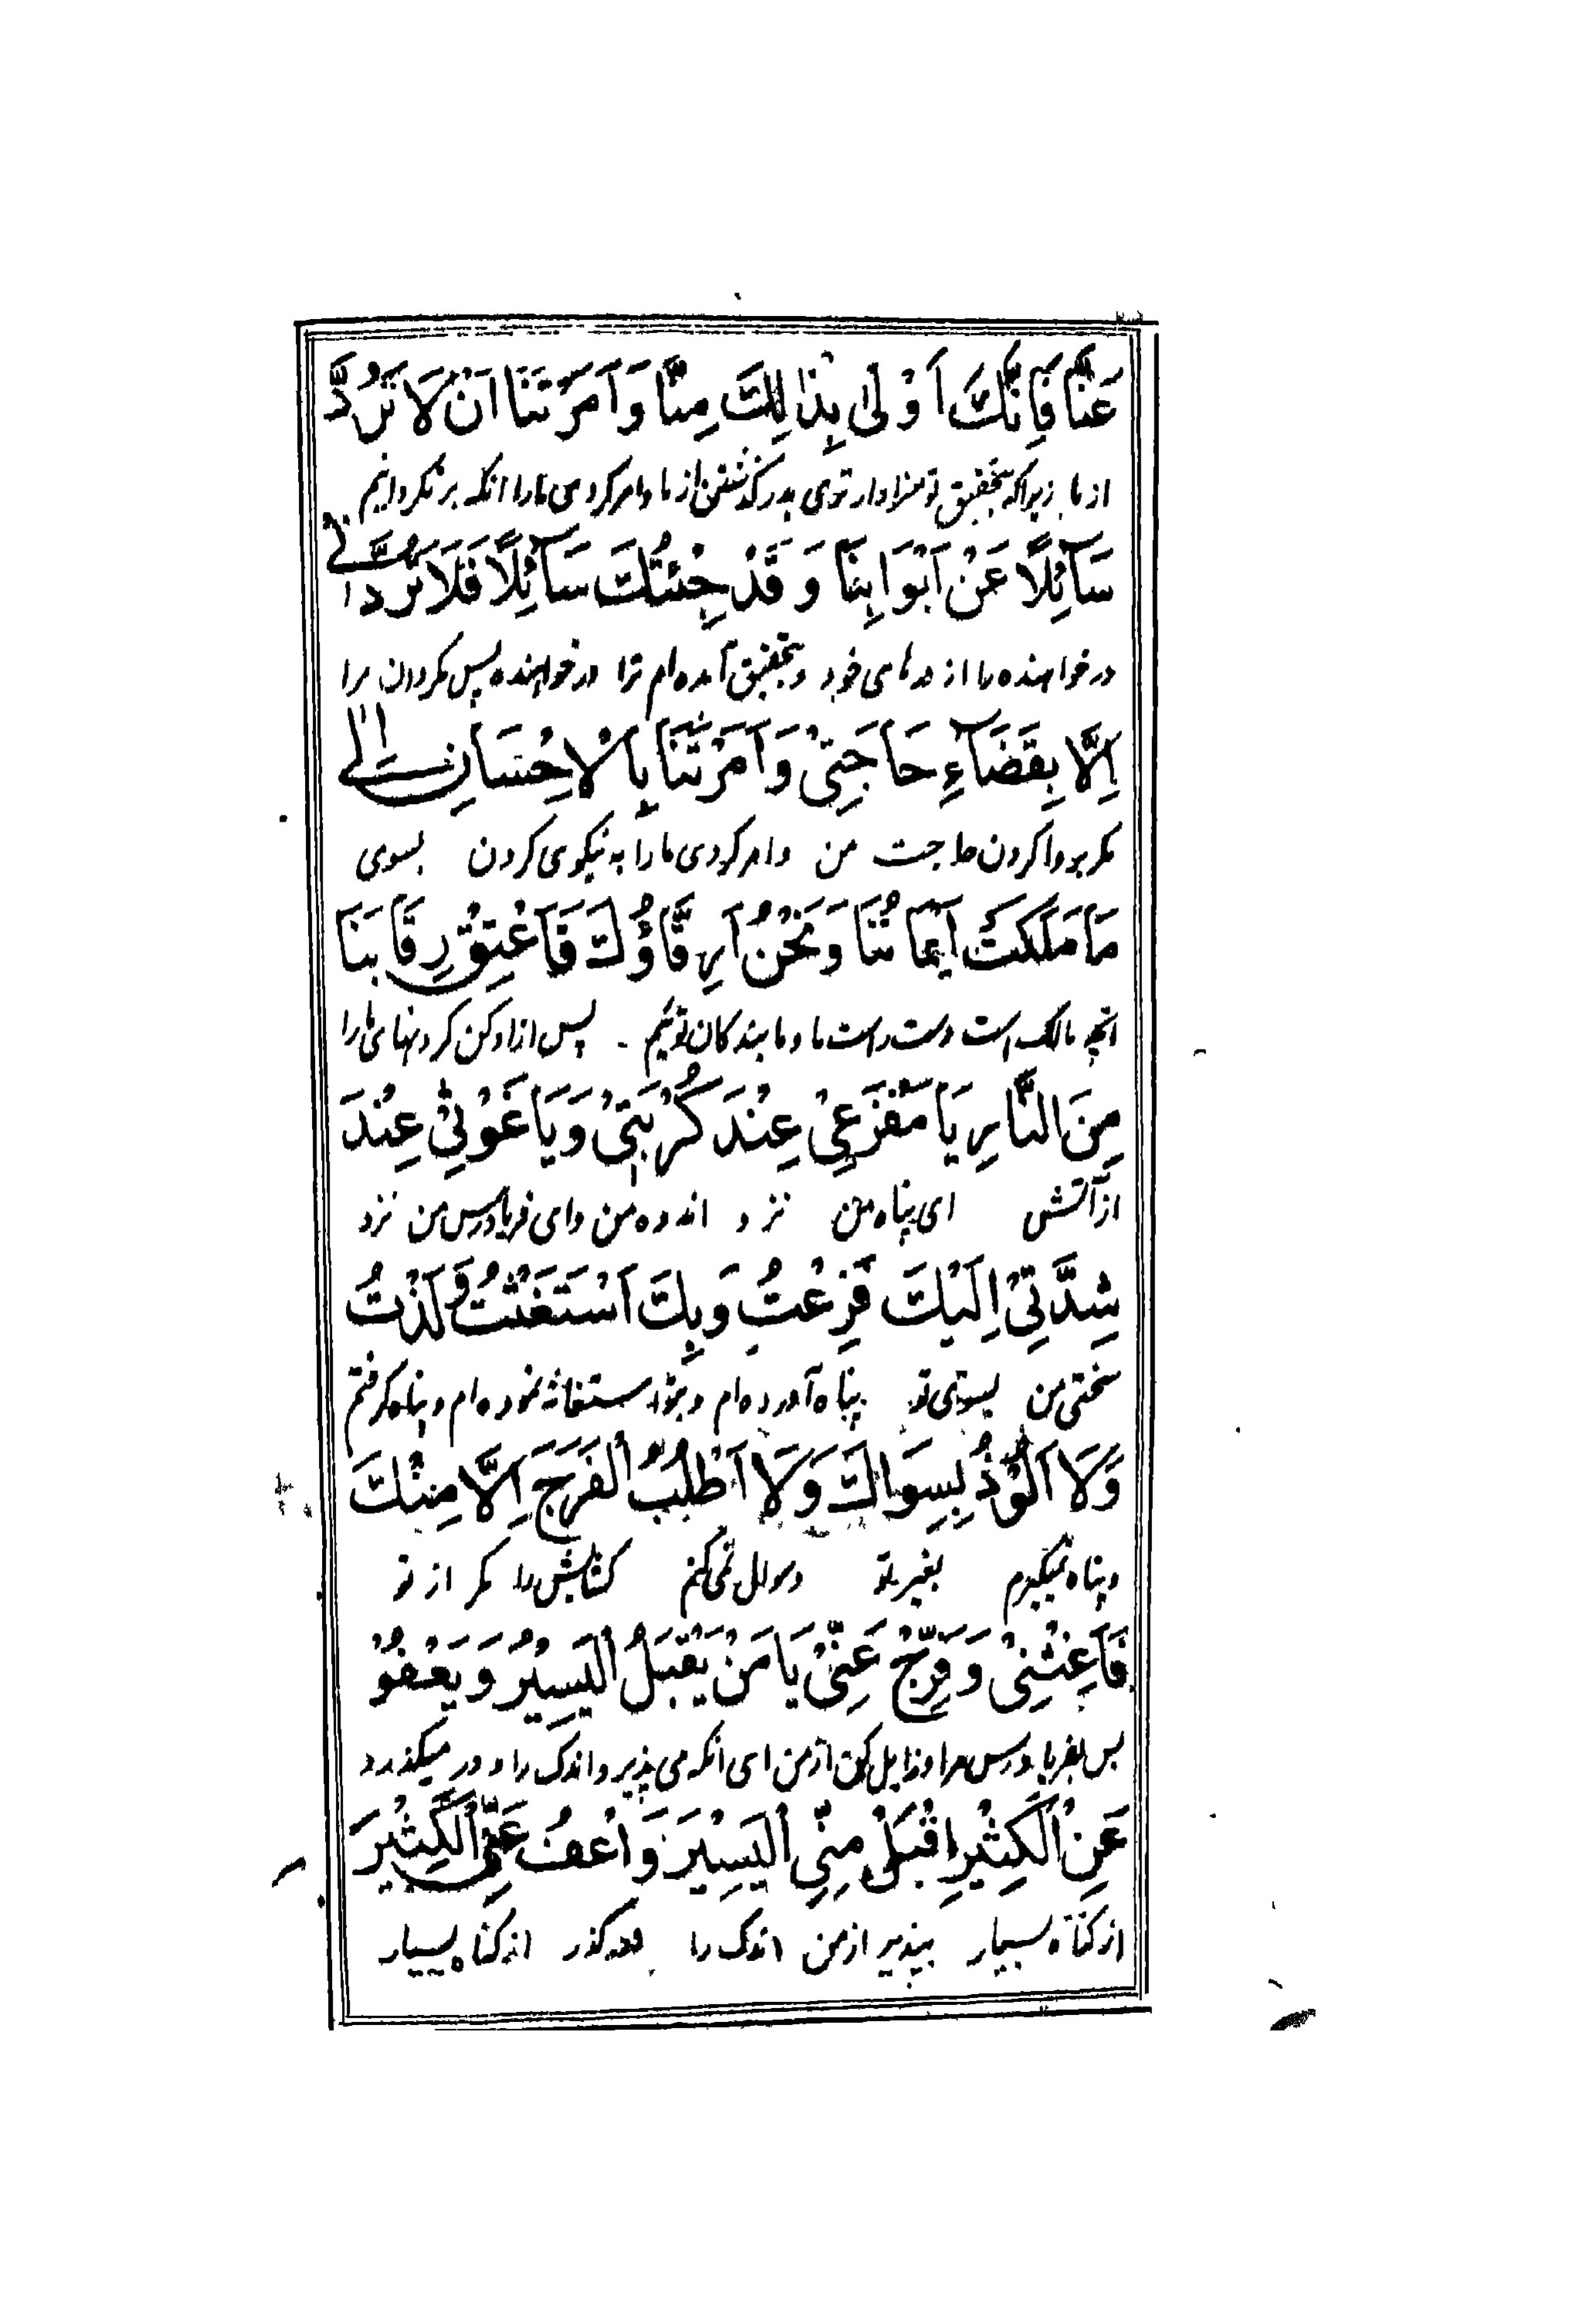 عَنَّا فَاِنَّكَ اَوْلٰى بِذٰالِكَ مِنَّا وَاَمَرْتَنَا اَنْ لَا نَرُدَّ
از ما زیراکه بتحقیق تو سزاوار توی بدر گذشتن از ما و امر کردی ما را انکه بر نکردانیم
سَآئِلًا عَنْ اَبْوَابِنَا وَ قَدْ جِئْتُكَ سَآئِلًا فَلَا تَرُدَّنِے
درخواهنده را از درهای خود و بتحقیق آمده ام ترا درخواهنده پس مکردان مرا
اِلَّا بِقَضَآءِ حَاجَتِیْ وَاَمَرْتَنَا بِالْاِحْسَانِ اِلٰے
مکر بروا کردن حاجت من و امر کردی ما را به نیکوی کردن بسوی
مَا مَلَكَتْ اَيْمَانُنَا وَنَحْنُ اَرِقَّاؤُكَ فَاَعْتِقْ رِقَابَنَا
انچه مالک است دست راست ما و ما بندکان توئیم پس ازاد کن کردنهای ما را
مِنَ النَّارِ يَا مَفْزَعِیْ عِنْدَ كُرْبَتِیْ وَيَا غَوْثِیْ عِنْدَ
از آتش ای پناه من نزد اندوه من و ای فریادرس من نزد
شِدَّتِیْ اِلَيْكَ فَزِعْتُ وَبِكَ اَسْتَغَثْتُ وَلَذْتُ
سختی من بسوی تو پناه آورده ام و بتو استغاثه نموده ام و پناه کرفتم
وَلَا اَلُوْذُ بِسِوَاكَ وَلَا اَطْلُبُ الْفَرَجَ اِلَّا مِنْكَ
و پناه نمیکیرم بغیر تو و سوال نمی کنم کشایش را مکر از تو
فَاَغِثْنِیْ وَفَرِّجْ عَنِّیْ يَا مَنْ يَقْبَلُ الْيَسِيْرُ وَيَعْفُوْ
پس بفریاد رس مرا و زایل کن از من ای انکه می پذیرد اندک را و در میکذرد
عَنِ الْكَثِيْرِ اِقْبَلْ مِنِّی الْيَسِيْرَ وَاعْفُ عَنِّی الْكَثِيْرَ
از کناه بسیار بپذیر از من اندک را و در کذر از کناه بسیار